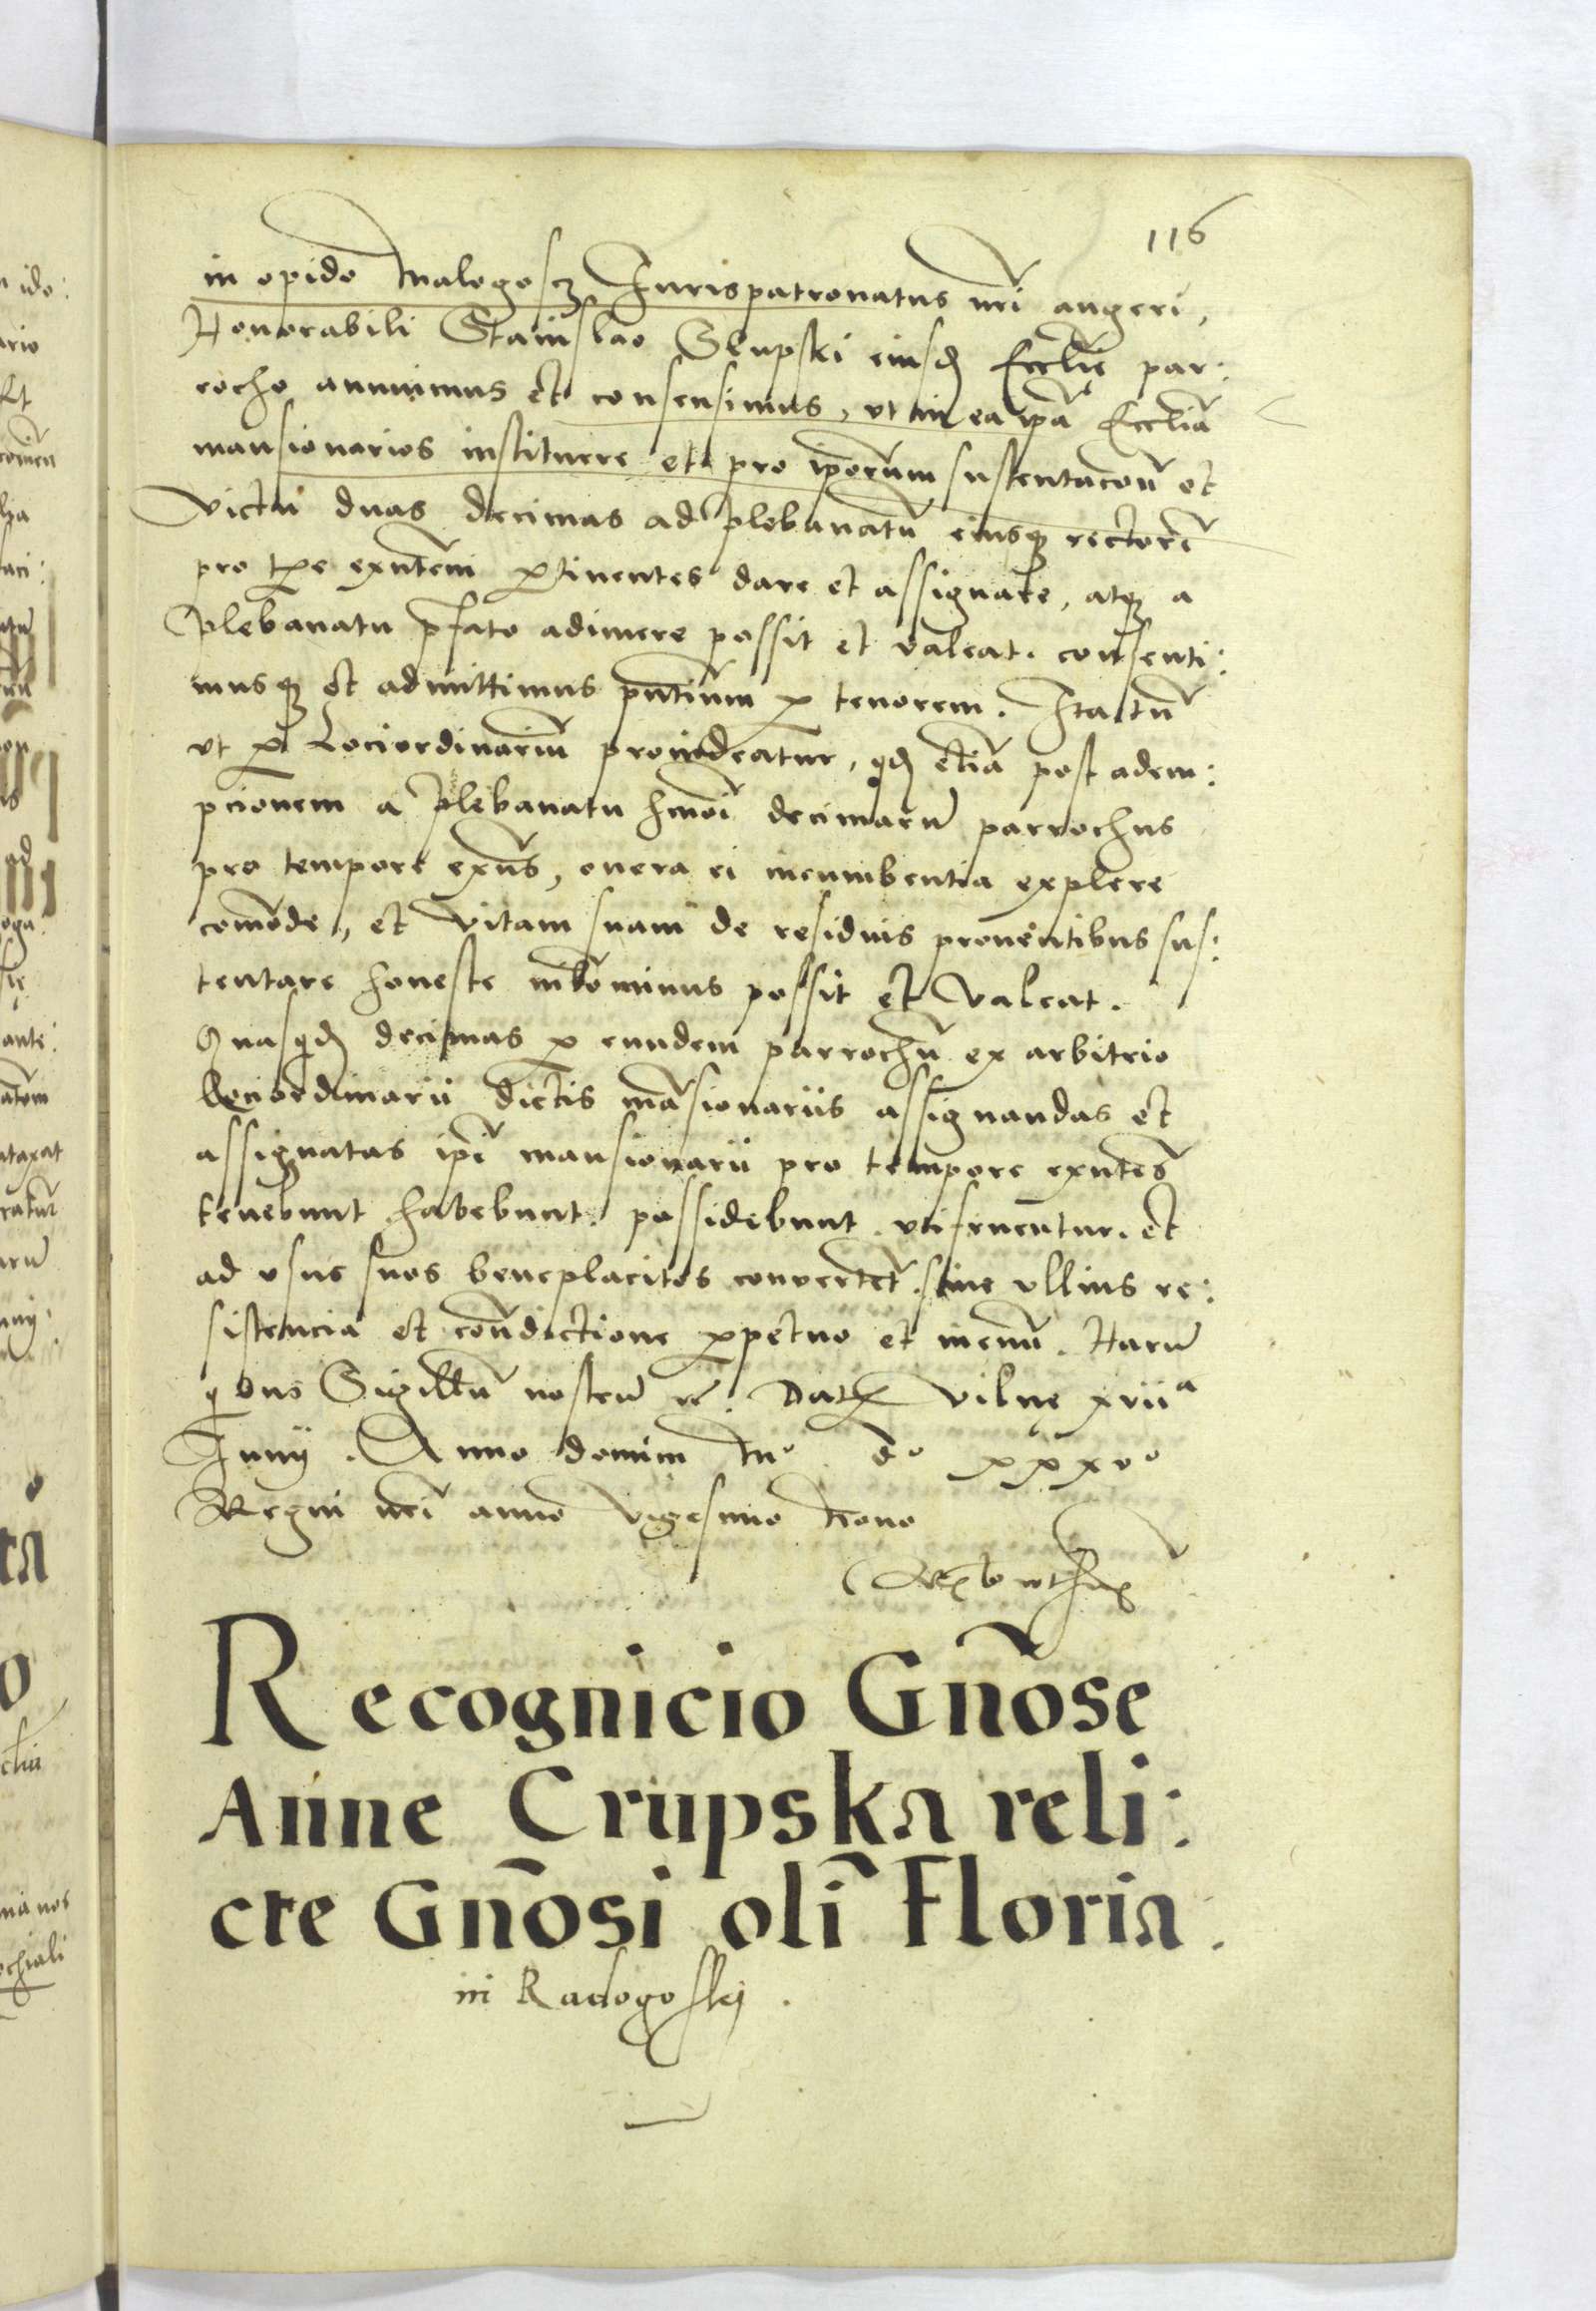 116
in opido Malogoscz Jurispatronatus nrī augeri,
Honorabili Stanislao Slupski eiusd Eccliē par:
rocho annuimus et consensimus, vt in ea ipā Eccliā
mansionarios instituere et pro ipōrum sustentacōnē et
victu duas decimas ad plebanatū eiusq rectorē
pro tpē exntēm ptinentes dare et assignare, atq a
plebanatu pfato adimere possit et valeat. consenti:
musq et admittimus pntium p tenorem. Ita tn̄
vt p Lociordinariū prouideatur, qd etiā post adem:
pcionem a plebanatu hmoī decimarū parrochus
pro tempore exns̄, onera ei incumbentia explere
comōde, et vitam suam de residuis prouentibus sus:
tentare honeste nihominus possit et valeat.
Quasqd decimas p eundem parrochū ex arbitrio
Lociordinarii dictis māsionariis assignandas et
assignatas ipī mansionarii pro tempore exntes̄
tenebunt habebunt. possidebunt. vtifruentur. et
ad vsus suos beneplacitos conuertēt. sine vllius re:
sistencia et contdictione ppetuo et ineuū. Harū
qbus Sigillū nostrū rc̄. Dat Vilnę xvii a
Junij. Anno domini Mo do xxxvo
Regni nrī anno vigesimo nono
Recognicio Gnōse
Anne Crupska reli:
cte Gnōsi oli᷉ Floria:
ni Radogoskij.